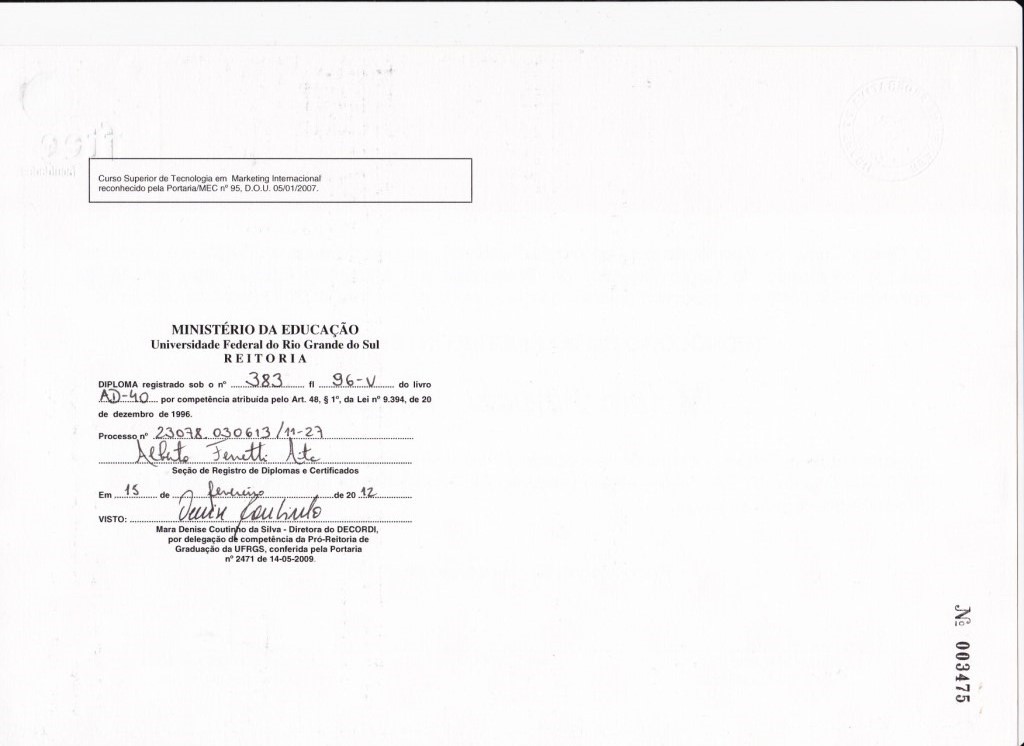 Curso Superior de Tecnologia em Marketing Internacional
reconhecido pela Portaria/MEC nº 95, D.O.U. 05/01/2007.
MINISTÉRIO DA EDUCAÇÃO
Universidade Federal do Rio Grande do Sul
REITORIA
DIPLOMA registrado sob o nº 383 fl 96-V do livro
AD-40 por competência atribuída pelo Art. 48, § 1º, da Lei nº 9.394, de 20
de dezembro de 1996.
Processo nº 23078.030613/11-27
Alberto
Seção de Registro de Diplomas e Certificados
Em 15 de fevereiro de 2012
VISTO: Denise Coutinho
Mara Denise Coutinho da Silva - Diretora do DECORDI,
por delegação de competência da Pró-Reitoria de
Graduação da UFRGS, conferida pela Portaria
nº 2471 de 14-05-2009.
Nº 003475